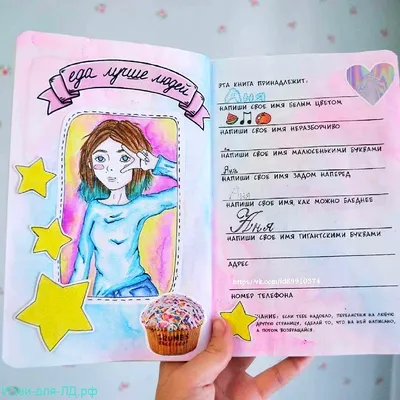 еда лучше людей
ЭТА КНИГА ПРИНАДЛЕЖИТ:
Аня
НАПИШИ СВОЕ ИМЯ БЕЛЫМ ЦВЕТОМ
НАПИШИ СВОЕ ИМЯ НЕРАЗБОРЧИВО
НАПИШИ СВОЕ ИМЯ МАЛЮСЕНЬКИМИ БУКВАМИ
НАПИШИ СВОЕ ИМЯ ЗАДОМ НАПЕРЕД
Аня
НАПИШИ СВОЕ ИМЯ, КАК МОЖНО БЛЕДНЕЕ
Аня
НАПИШИ СВОЕ ИМЯ ГИГАНТСКИМИ БУКВАМИ
АДРЕС
НОМЕР ТЕЛЕФОНА
ЕСЛИ ТЕБЕ НАДОЕЛО, ПЕРЕЛИСТНИ НА ЛЮБУЮ
ДРУГУЮ СТРАНИЦУ, СДЕЛАЙ ТО, ЧТО НА НЕЙ НАПИСАНО,
А ПОТОМ ВОЗВРАЩАЙСЯ.
CRUMBS